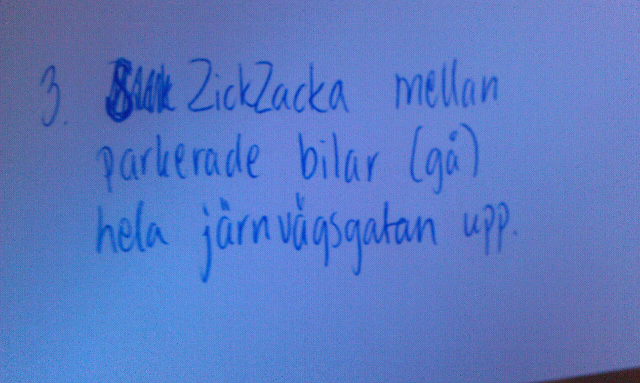 3. ZickZacka mellan
parkerade bilar (gå)
hela järnvägsgatan upp.